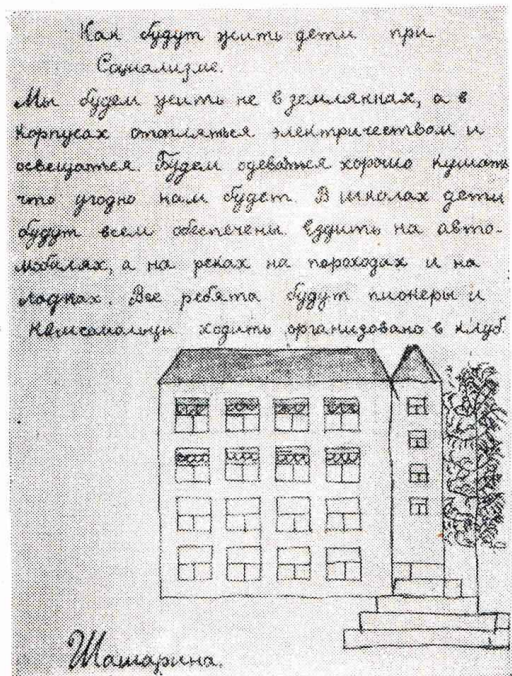 Как будут жить дети при
Социализме.
Мы будем жить не в землянках, а в
корпусах отопляться электричеством и
освещатся. Будем одеваться хорошо кушать
что угодно нам будет. В школах дети
будут всем обеспечены. Ездить на авто-
мобалях, а на реках на пороходах и на
лодках. Все ребята будут пионеры и
комсомольцы ходить организовано в клуб
Шашарина.